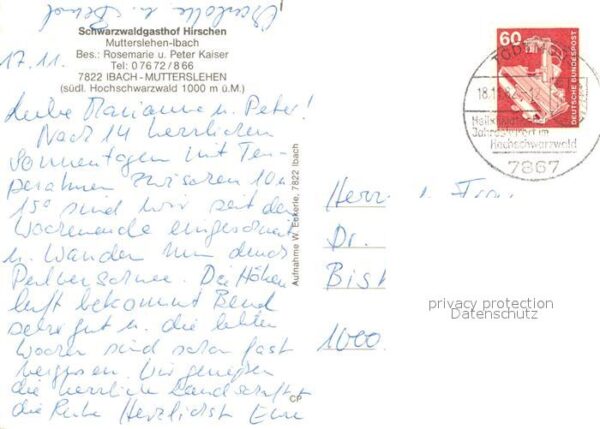 Schwarzwaldgasthof Hirschen
Mutterslehen-Ibach
Bes.: Rosemarie u. Peter Kaiser
Tel: 0 76 72 / 8 66
7822 IBACH - MUTTERSLEHEN
(südl. Hochschwarzwald 1000 m ü.M.)
17.11.
Liebe Marianne u. Peter!
Nach 14 herrlichen
Sonnentagen mit Tem-
peraturen zwischen 10 u
15° sind wir seit dem
Wochenende eingeschneit
u. wandern nun durch
Pulverschnee. Die Höhen-
luft bekommt Bernd
sehr gut u. die letzten
Wochen sind schon fast
vergessen. Wir genießen
die herrliche Landschaft
die Ruhe Herzlichst Eure
u. Bernd
Aufnahme W. Eckerle, 7822 Ibach
CP
60
DEUTSCHE BUNDESPOST
18.11.82
Hochschwarzwald
7867
Herrn u. Frau
Dr.
Bist
1000
privacy protection
Datenschutz